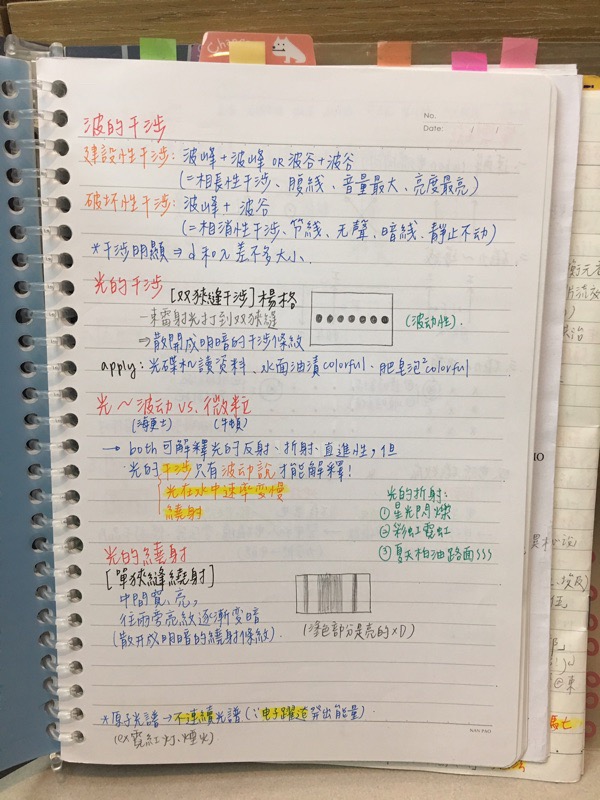 No.
Date: / /
波的干涉
建設性干涉: 波峰+波峰 or 波谷+波谷
(=相長性干涉、腹線、音量最大、亮度最亮)
破坏性干涉: 波峰+波谷
(=相消性干涉、节線、无聲、暗線、靜止不动)
*干涉明顯⇒d和λ差不多大小、
光的干涉 [双狹縫干涉] 楊格
一束雷射光打到双狹縫
⇒散開成明暗的干涉條紋
(波动性).
apply: 光碟机讀資料、水面油漬colorful、肥皂泡²colorful
光~波动 vs. 微粒
(海更士) (牛頓)
→ both 可解釋光的反射、折射、直進性,但
光的干涉只有波动說才能解釋!
光在水中速率变慢
繞射
光的折射:
①星光閃爍
②彩虹霓虹
③夏天柏油路面SSS
光的繞射
[單狹縫繞射]
中間寬、亮,
往兩旁亮紋逐漸变暗
(散开成明暗的繞射條紋).
(塗色部分是亮的XD)
*原子光譜→不連續光譜(∵电子躍遷釋出能量)
(ex霓紅灯、煙火)
NAN PAO
10